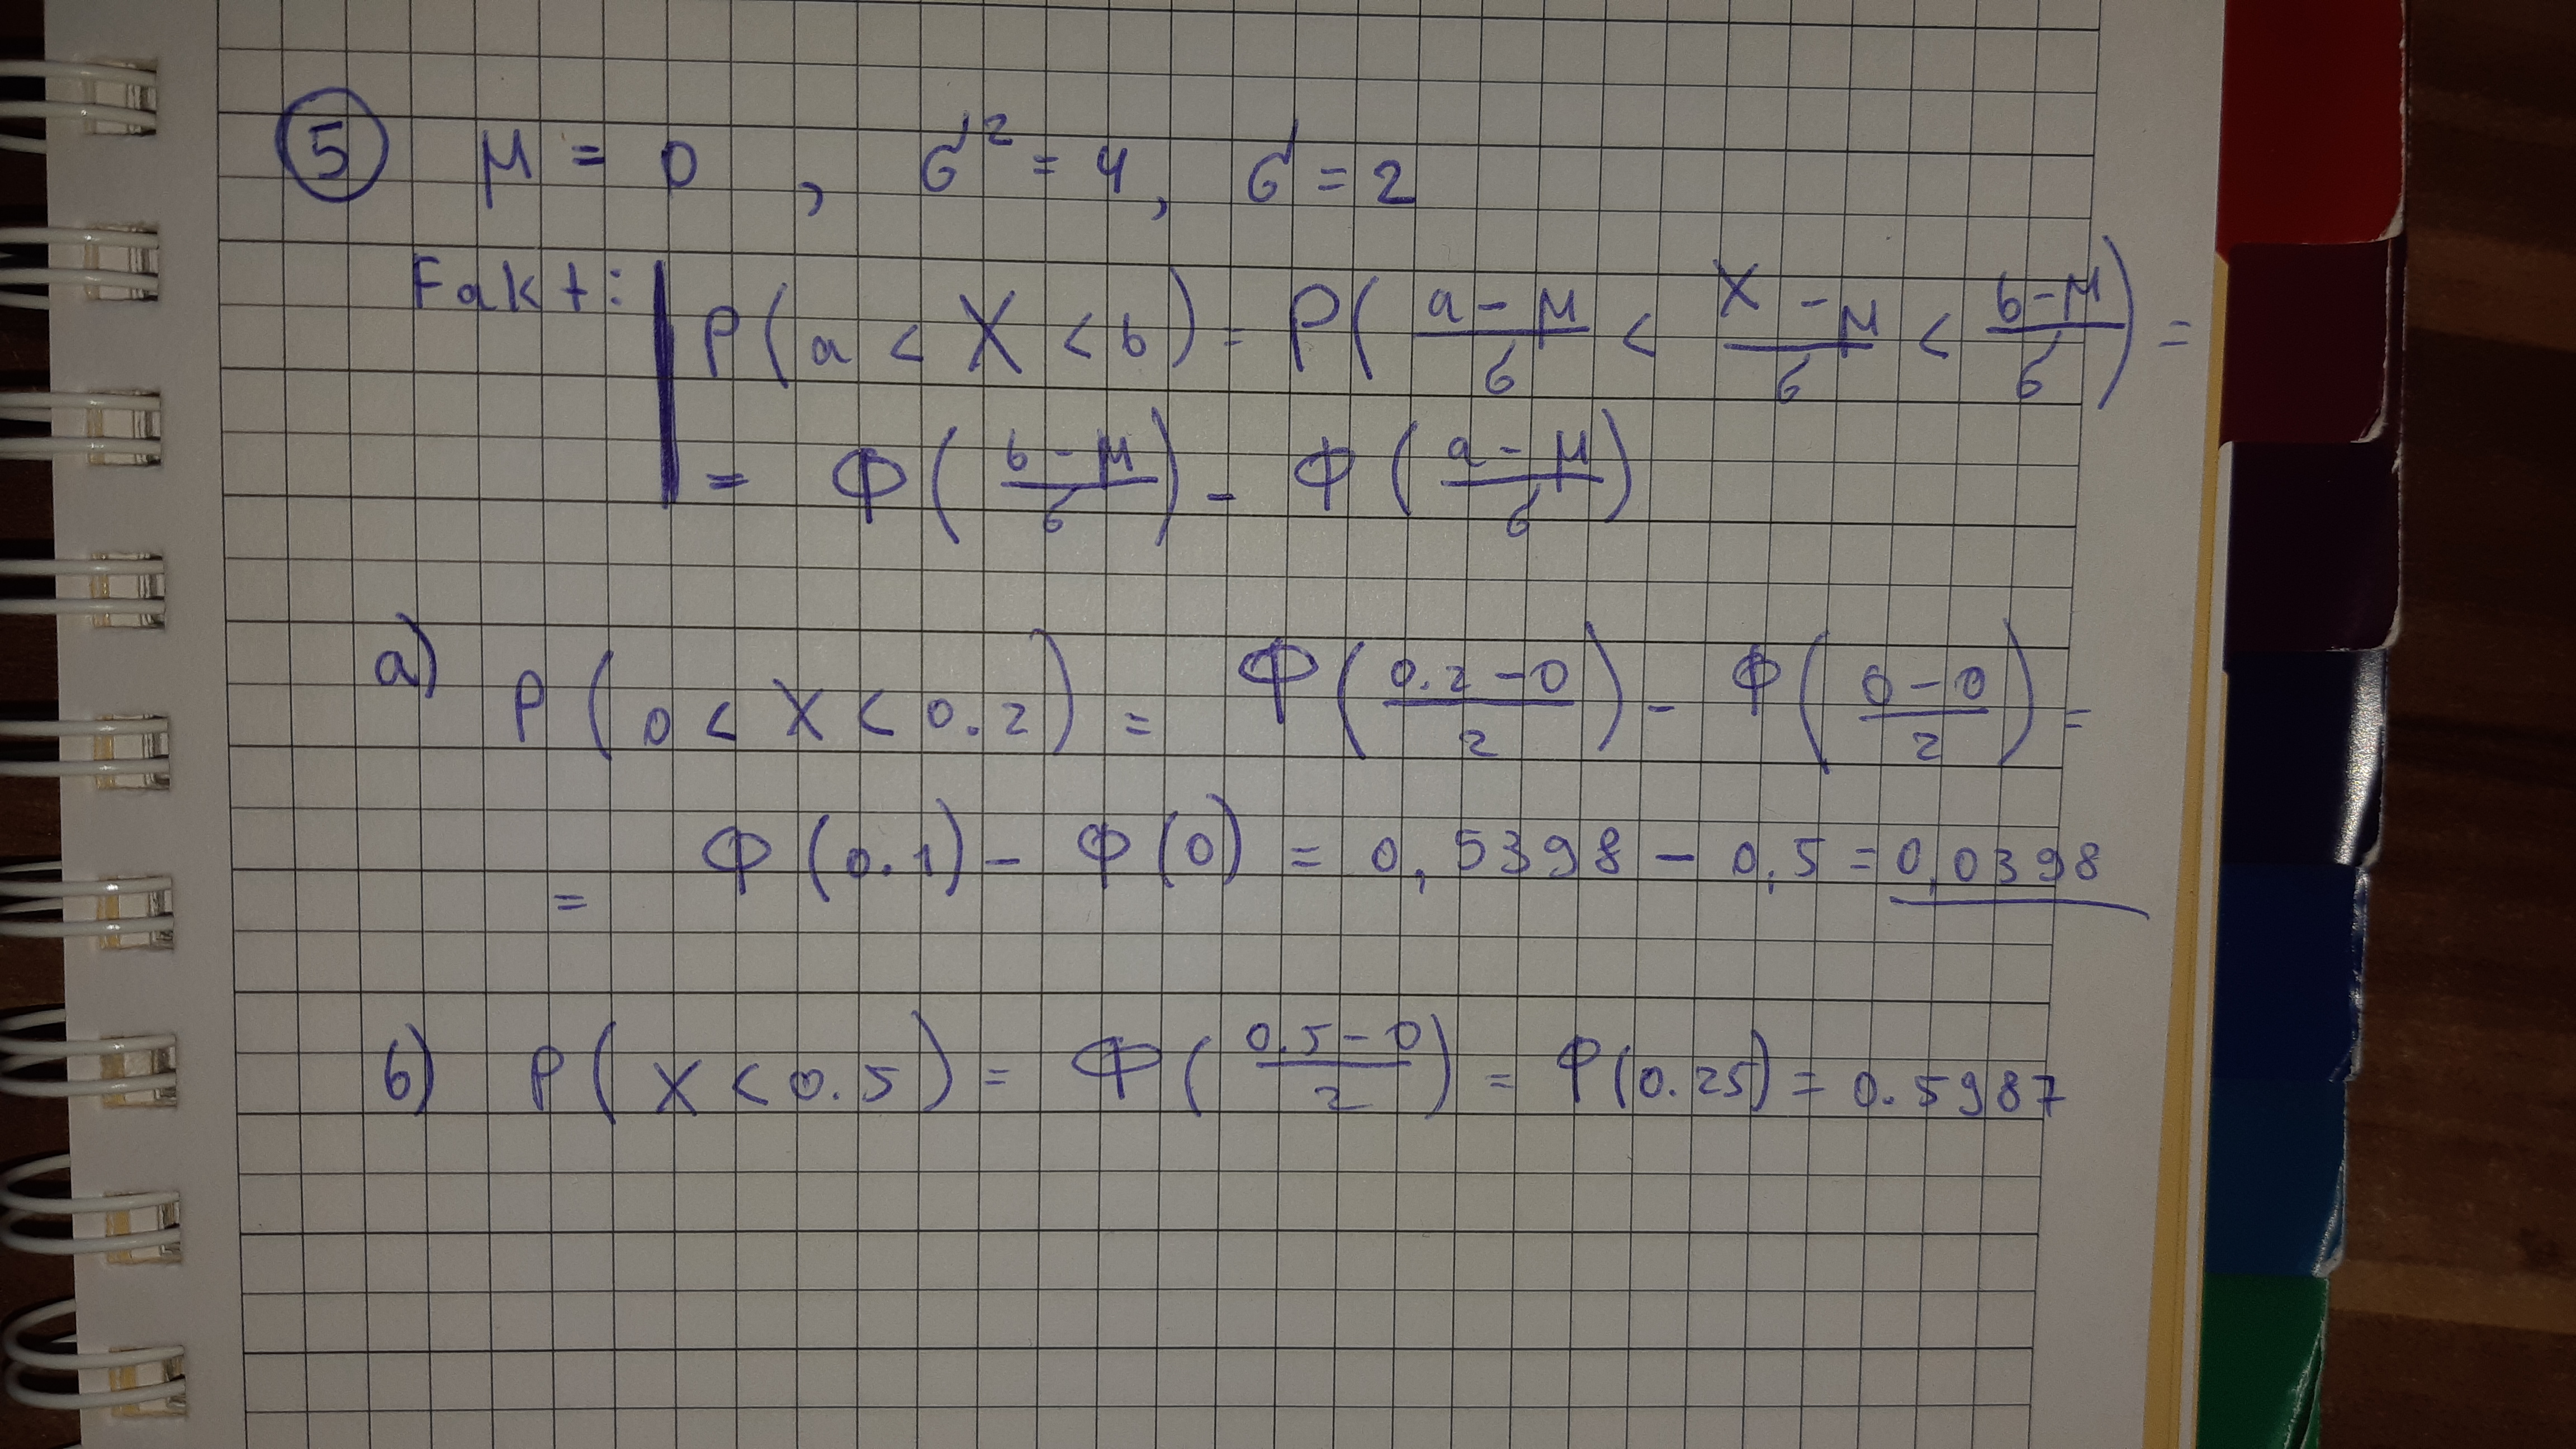 ⑤ μ = 0 , σ² = 4, σ = 2
Fakt: P(a < X < b) = P( (a-μ)/σ < (X-μ)/σ < (b-μ)/σ ) =
= Φ( (b-μ)/σ ) - Φ( (a-μ)/σ )
a) P(0 < X < 0.2) = Φ( (0.2-0)/2 ) - Φ( (0-0)/2 ) =
= Φ(0.1) - Φ(0) = 0,5398 - 0,5 = 0,0398
b) P(X < 0.5) = Φ( (0.5-0)/2 ) = Φ(0.25) = 0.5987